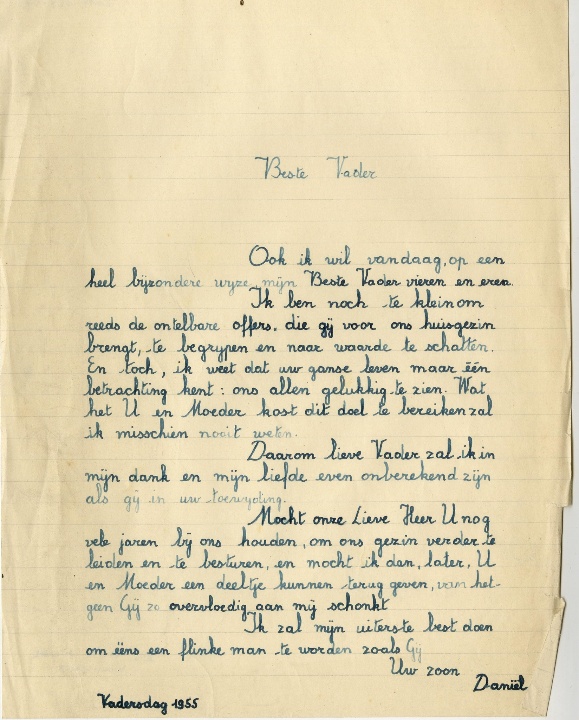 Beste Vader
Ook ik wil vandaag, op een
heel bijzondere wyze mijn Beste Vader vieren en eren.
Ik ben noch te klein om
reeds de ontelbare offers, die gij voor ons huisgezin
brengt, te begrypen en naar waarde te schatten.
En toch, ik weet dat uw ganse leven maar één
betrachting kent: ons allen gelukkig te zien. Wat
het U en Moeder kost dit doel te bereiken zal
ik misschien nooit weten.
Daarom lieve Vader zal ik in
mijn dank en mijn liefde even onberekend zijn
als gij in uw toewyding.
Mocht onze Lieve Heer U nog
vele jaren bij ons houden, om ons gezin verder te
leiden en te besturen, en mocht ik dan, later, U
en Moeder een deeltje kunnen terug geven, van het-
geen Gij zo overvloedig aan mij schonkt
Ik zal mijn uiterste best doen
om ééns een flinke man te worden zoals Gij
Uw zoon
Daniël
Vadersdag 1955